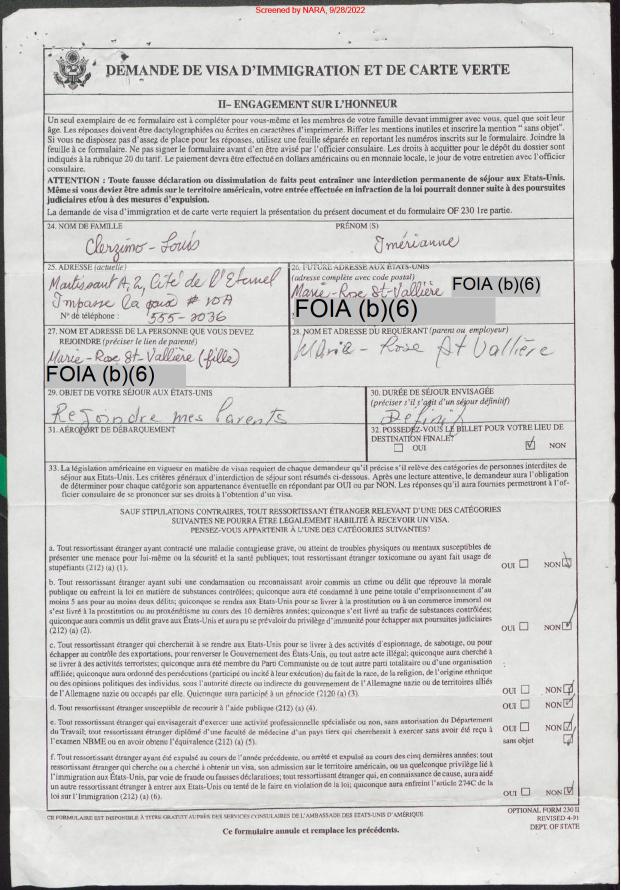 Screened by NARA, 9/28/2022
DEMANDE DE VISA D'IMMIGRATION ET DE CARTE VERTE
II– ENGAGEMENT SUR L'HONNEUR
Un seul exemplaire de ce formulaire est à compléter pour vous-même et les membres de votre famille devant immigrer avec vous, quel que soit leur
âge. Les réponses doivent être dactylographiées ou écrites en caractères d'imprimerie. Biffer les mentions inutiles et inscrire la mention " sans objet".
Si vous ne disposez pas d'assez de place pour les réponses, utilisez une feuille séparée en reportant les numéros inscrits sur le formulaire. Joindre la
feuille à ce formulaire. Ne pas signer le formulaire avant d'en être avisé par l'officier consulaire. Les droits à acquitter pour le dépôt du dossier sont
indiqués à la rubrique 20 du tarif. Le paiement devra être effectué en dollars américains ou en monnaie locale, le jour de votre entretien avec l'officier
consulaire.
ATTENTION : Toute fausse déclaration ou dissimulation de faits peut entraîner une interdiction permanente de séjour aux Etats-Unis.
Même si vous deviez être admis sur le territoire américain, votre entrée effectuée en infraction de la loi pourrait donner suite à des poursuites
judiciaires et/ou à des mesures d'expulsion.
La demande de visa d'immigration et de carte verte requiert la présentation du présent document et du formulaire OF 230 1re partie.
24. NOM DE FAMILLE PRÉNOM (S)
Clerzimo - Louis Imérianne
25. ADRESSE (actuelle) 26. FUTURE ADRESSE AUX ÉTATS-UNIS
(adresse complète avec code postal)
Martissant A, 2, Cité de l'Eternel Marie-Rose St-Vallière FOIA (b)(6)
Impasse la paix # 10A FOIA (b)(6)
N° de téléphone : 555-2036
27. NOM ET ADRESSE DE LA PERSONNE QUE VOUS DEVEZ 28. NOM ET ADRESSE DU REQUÉRANT (parent ou employeur)
REJOINDRE (préciser le lien de parenté) Marie - Rose St Vallière
Marie-Rose St-Vallière (fille)
FOIA (b)(6)
29. OBJET DE VOTRE SÉJOUR AUX ÉTATS-UNIS 30. DURÉE DE SÉJOUR ENVISAGÉE
(préciser s'il s'agit d'un séjour définitif)
Rejoindre mes Parents Définitif
31. AÉROPORT DE DÉBARQUEMENT 32. POSSEDEZ-VOUS LE BILLET POUR VOTRE LIEU DE
DESTINATION FINALE?
OUI NON
33. La législation américaine en vigueur en matière de visas requiert de chaque demandeur qu'il précise s'il relève des catégories de personnes interdites de
séjour aux Etats-Unis. Les critères généraux d'interdiction de séjour sont résumés ci-dessous. Après une lecture attentive, le demandeur aura l'obligation
de déterminer pour chaque catégorie son appartenance éventuelle en répondant par OUI ou par NON. Les réponses qu'il aura fournies permettront à l'of-
ficier consulaire de se prononcer sur ses droits à l'obtention d'un visa.
SAUF STIPULATIONS CONTRAIRES, TOUT RESSORTISSANT ÉTRANGER RELEVANT D'UNE DES CATÉGORIES
SUIVANTES NE POURRA ÊTRE LÉGALEMEMT HABILITÉ À RECEVOIR UN VISA.
PENSEZ-VOUS APPARTENIR À L'UNE DES CATÉGORIES SUIVANTES?
a. Tout ressortissant étranger ayant contracté une maladie contagieuse grave, ou atteint de troubles physiques ou mentaux susceptibles de
présenter une menace pour lui-même ou la sécurité et la santé publiques; tout ressortissant étranger toxicomane ou ayant fait usage de
stupéfiants (212) (a) (1). OUI NON
b. Tout ressortissant étranger ayant subi une condamnation ou reconnaissant avoir commis un crime ou délit que réprouve la morale
publique ou enfreint la loi en matière de substances contrôlées; quiconque aura été condamné à une peine totale d'emprisonnement d'au
moins 5 ans pour au moins deux délits; quiconque se rendra aux Etats-Unis pour se livrer à la prostitution ou à un commerce immoral ou
s'est livré à la prostitution ou au proxénétisme au cours des 10 dernières années; quiconque s'est livré au trafic de substances contrôlées;
quiconque aura commis un délit grave aux États-Unis et aura pu se prévaloir du privilège d'immunité pour échapper aux poursuites judiciaires
(212) (a) (2). OUI NON
c. Tout ressortissant étranger qui chercherait à se rendre aux Etats-Unis pour se livrer à des activités d'espionnage, de sabotage, ou pour
échapper au contrôle des exportations, pour renverser le Gouvernement des États-Unis, ou tout autre acte illégal; quiconque aura cherché à
se livrer à des activités terroristes; quiconque aura été membre du Parti Communiste ou de tout autre parti totalitaire ou d'une organisation
affiliée; quiconque aura ordonné des persécutions (participé ou incité à leur exécution) du fait de la race, de la religion, de l'origine ethnique
ou des opinions politiques des individus, sous l'autorité directe ou indirecte du gouvernement de l'Allemagne nazie ou de territoires alliés
de l'Allemagne nazie ou occupés par elle. Quiconque aura participé à un génocide (2120 (a) (3). OUI NON
d. Tout ressortissant étranger susceptible de recourir à l'aide publique (212) (a) (4). OUI NON
e. Tout ressortissant étranger qui envisagerait d'exercer une activité professionnelle spécialisée ou non, sans autorisation du Département
du Travail; tout ressortissant étranger diplômé d'une faculté de médecine d'un pays tiers qui chercherait à exercer sans avoir été reçu à OUI NON
l'examen NBME ou en avoir obtenu l'équivalence (212) (a) (5). sans objet
f. Tout ressortissant étranger ayant été expulsé au cours de l'année précédente, ou arrêté et expulsé au cours des cinq dernières années; tout
ressortissant étranger qui cherche ou a cherché à obtenir un visa, son admission sur le territoire américain, ou un quelconque privilège lié à
l'immigration aux États-Unis, par voie de fraude ou fausses déclarations; tout ressortissant étranger qui, en connaissance de cause, aura aidé
un autre ressortissant étranger à entrer aux Etats-Unis ou tenté de le faire en violation de la loi; quiconque aura enfreint l'article 274C de la
loi sur l'Immigration (212) (a) (6). OUI NON
CE FORMULAIRE EST DISPONIBLE À TITRE GRATUIT AUPRÈS DES SERVICES CONSULAIRES DE L'AMBASSADE DES ETATS-UNIS D'AMÉRIQUE
OPTIONAL FORM 230 II
REVISED 4-91
DEPT. OF STATE
Ce formulaire annule et remplace les précédents.